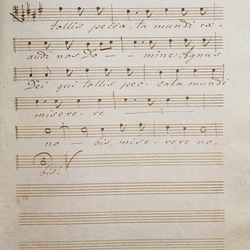 tollis pecca ta mundi ex
audi nos Do - - mine Agnus
Dei qui tollis pec cata mundi
misere re
no - bis mise-rere no,
bis.